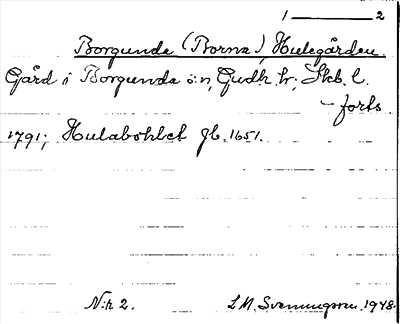 1 ——— 2
Borgunda (Borna), Hulegården
Gård i Borgunda sn, Gudh. hr, Skb. l.
– forts
1791; Hulabohlet Jb. 1651.
N:r 2. L.M. Svenungsson. 1948.